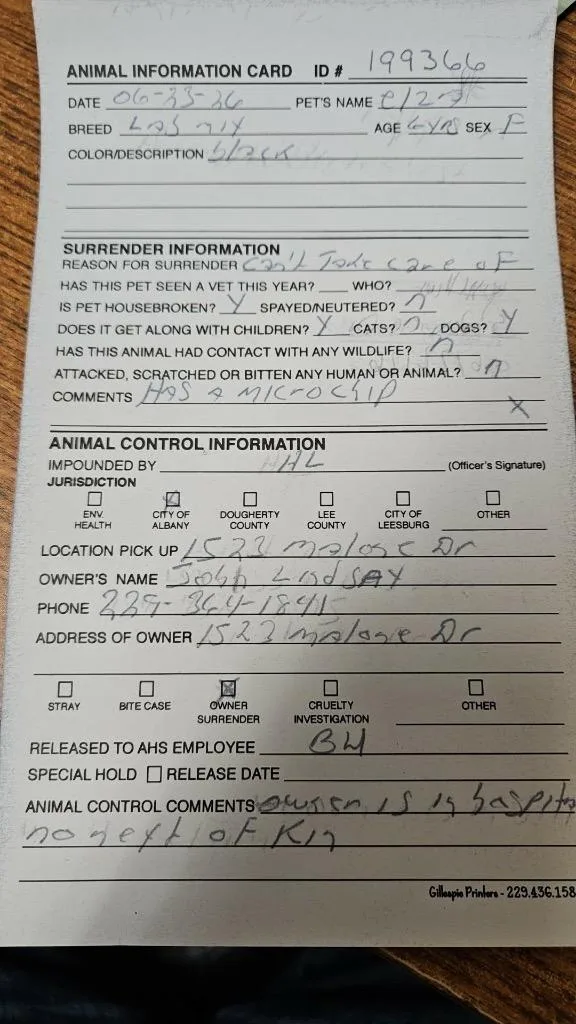 ANIMAL INFORMATION CARD ID # 199366
DATE PET'S NAME
BREED Lab mix AGE 6 YRS SEX F
COLOR/DESCRIPTION black
SURRENDER INFORMATION
REASON FOR SURRENDER Can't Take care of
HAS THIS PET SEEN A VET THIS YEAR? WHO?
IS PET HOUSEBROKEN? Y SPAYED/NEUTERED? n
DOES IT GET ALONG WITH CHILDREN? Y CATS? n DOGS? Y
HAS THIS ANIMAL HAD CONTACT WITH ANY WILDLIFE? n
ATTACKED, SCRATCHED OR BITTEN ANY HUMAN OR ANIMAL? n
COMMENTS HAS a microchip
X
ANIMAL CONTROL INFORMATION
IMPOUNDED BY HL (Officer's Signature)
JURISDICTION
ENV. HEALTH CITY OF ALBANY DOUGHERTY COUNTY LEE COUNTY CITY OF LEESBURG OTHER
LOCATION PICK UP 1523 Dr
OWNER'S NAME John LindSAY
PHONE 229-364-1841
ADDRESS OF OWNER 1523 Dr
STRAY BITE CASE OWNER SURRENDER CRUELTY INVESTIGATION OTHER
RELEASED TO AHS EMPLOYEE BH
SPECIAL HOLD RELEASE DATE
ANIMAL CONTROL COMMENTS owner is in hospita
no next of Kin
Gillespie Printers - 229.436.158